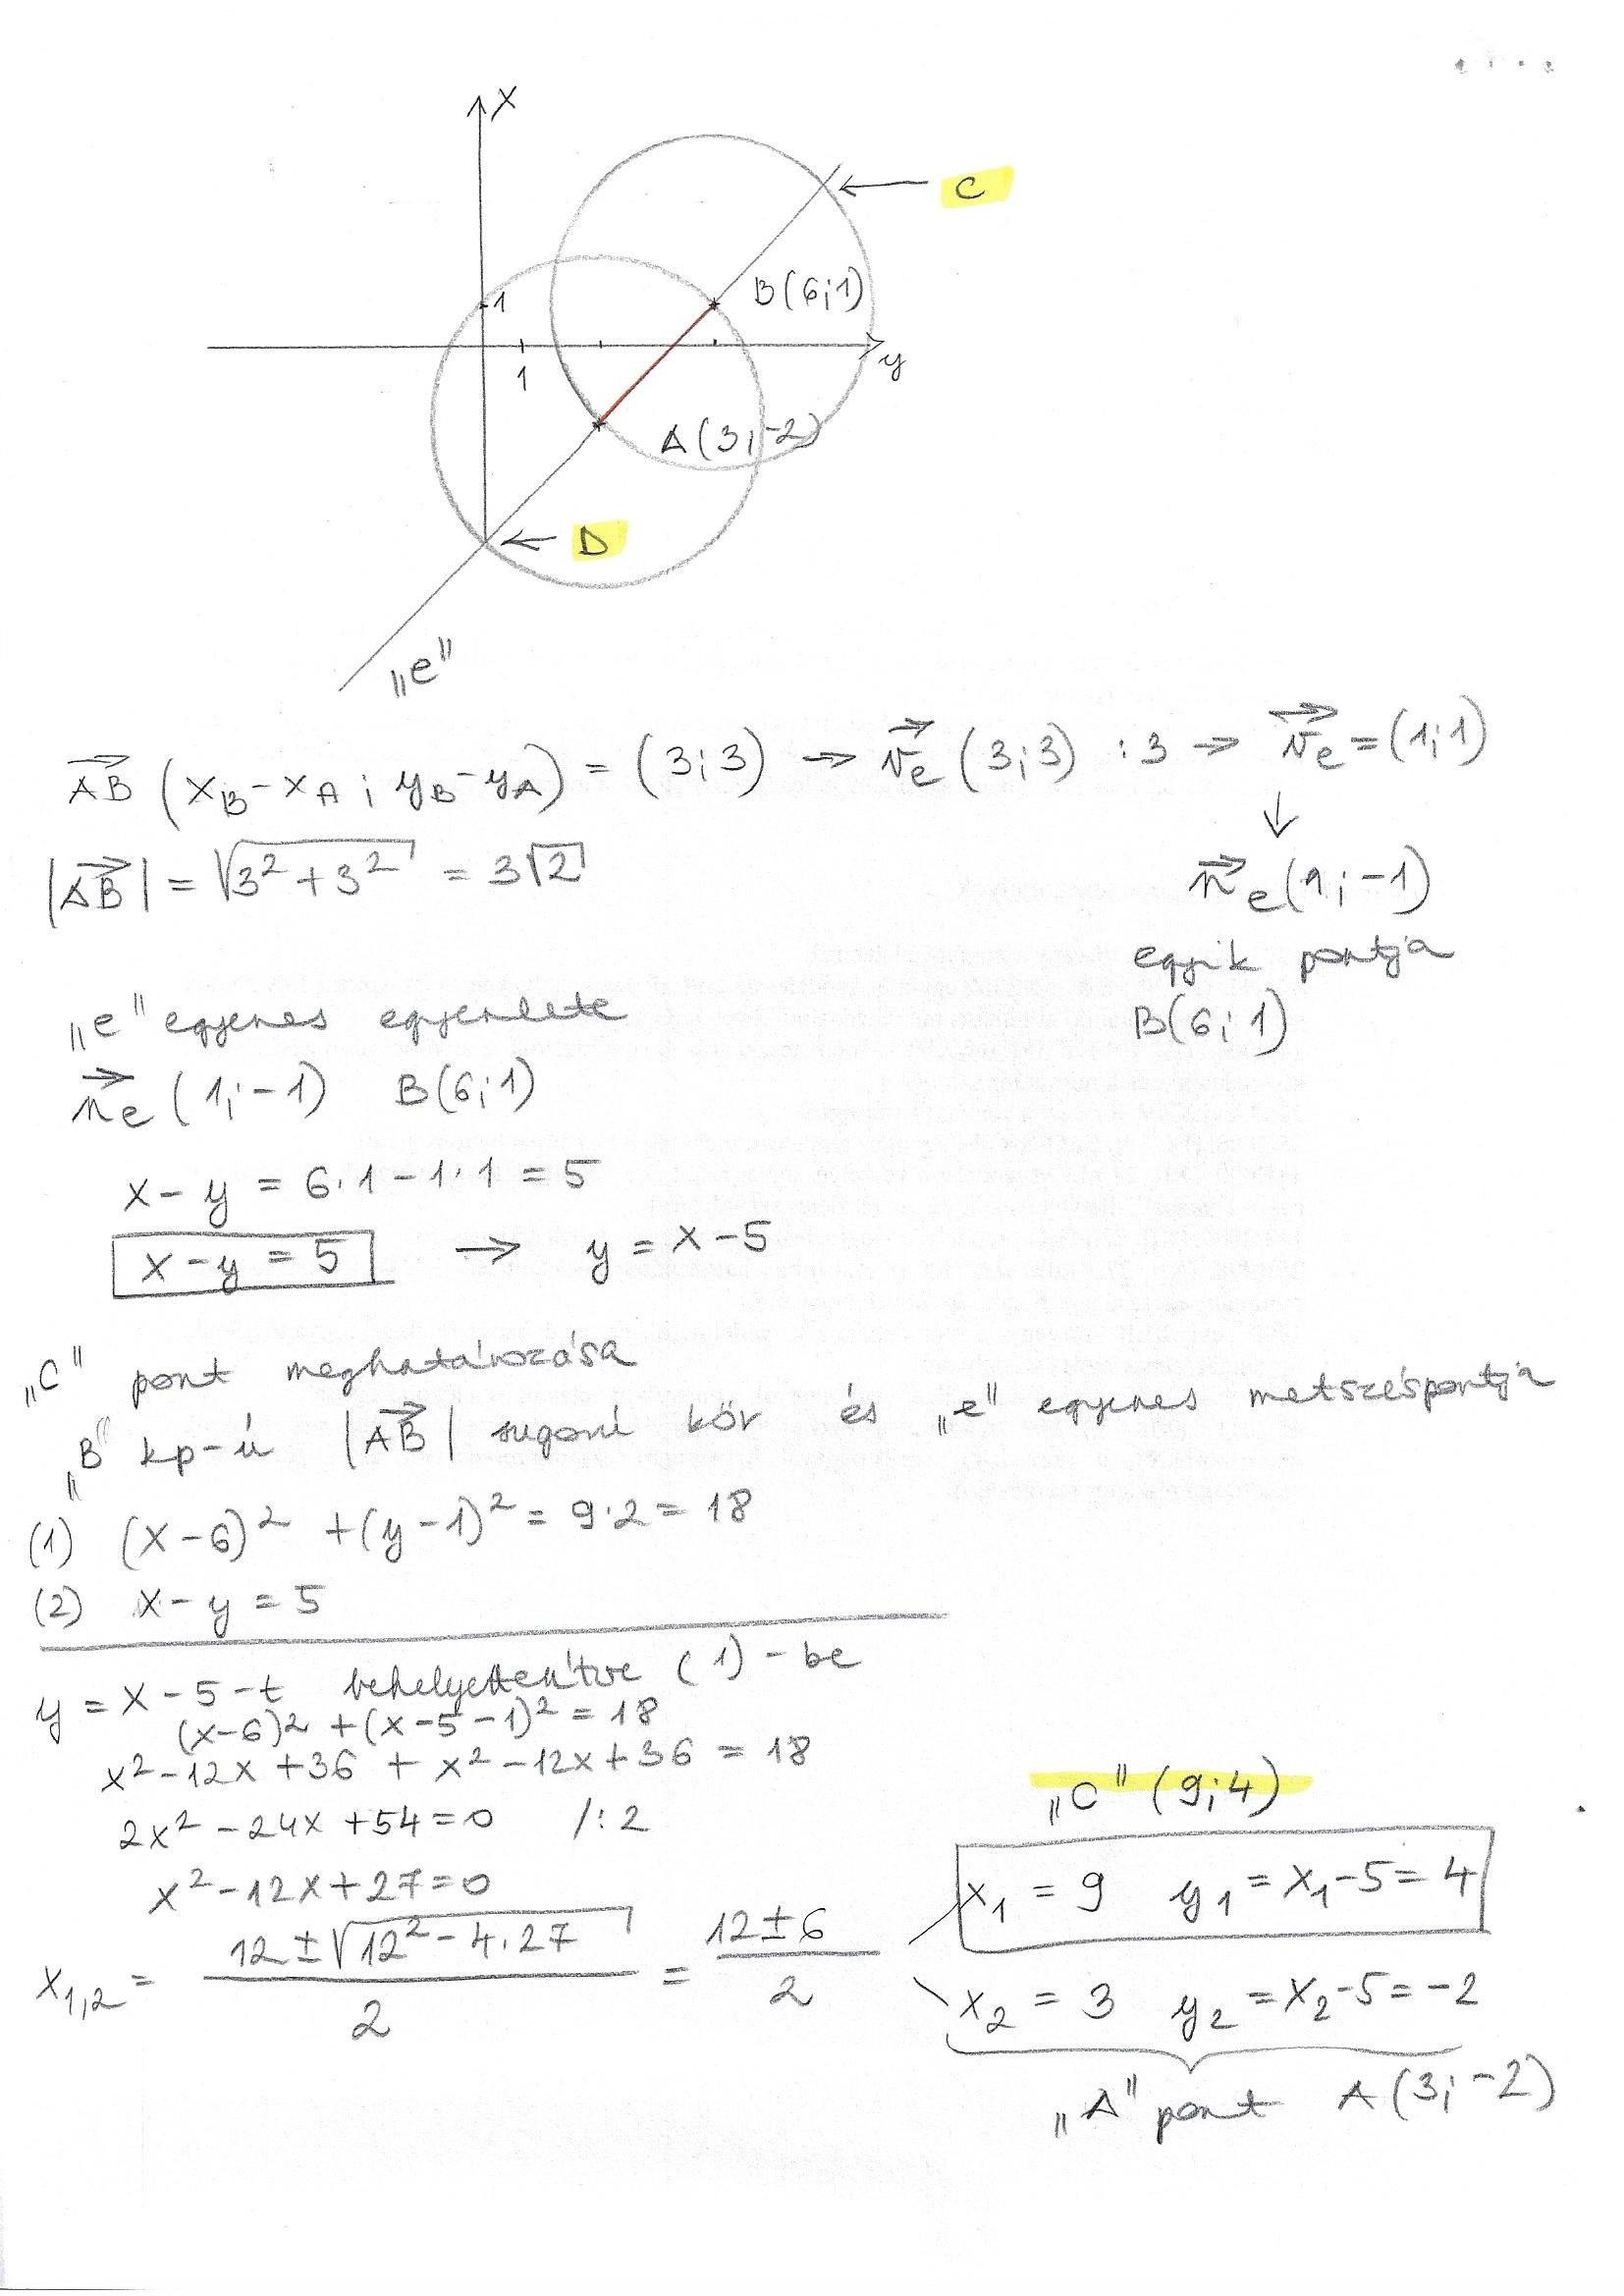 x
C
B(6;1)
1
y
1
A(3;-2)
D
„e"
AB→ (x_B - x_A ; y_B - y_A) = (3;3) → v_e→ (3;3) :3 → v_e→ = (1;1)
↓
|AB→| = √(3² + 3²) = 3√2
n→_e (1;-1)
egyik pontja
B(6;1)
„e" egyenes egyenlete
n_e→ (1;-1) B(6;1)
x - y = 6·1 - 1·1 = 5
x - y = 5 → y = x - 5
„C" pont meghatározása
„B" kp-ú |AB→| sugarú kör és „e" egyenes metszéspontja
(1) (x-6)² + (y-1)² = 9·2 = 18
(2) x - y = 5
y = x - 5 -t behelyettesítve (1)-be
(x-6)² + (x-5-1)² = 18
x² - 12x + 36 + x² - 12x + 36 = 18
2x² - 24x + 54 = 0 /:2
x² - 12x + 27 = 0
x_1,2 = (12 ± √(12² - 4·27)) / 2 = (12 ± 6) / 2
„C" (9;4)
x_1 = 9 y_1 = x_1 - 5 = 4
x_2 = 3 y_2 = x_2 - 5 = -2
„A" pont A(3;-2)